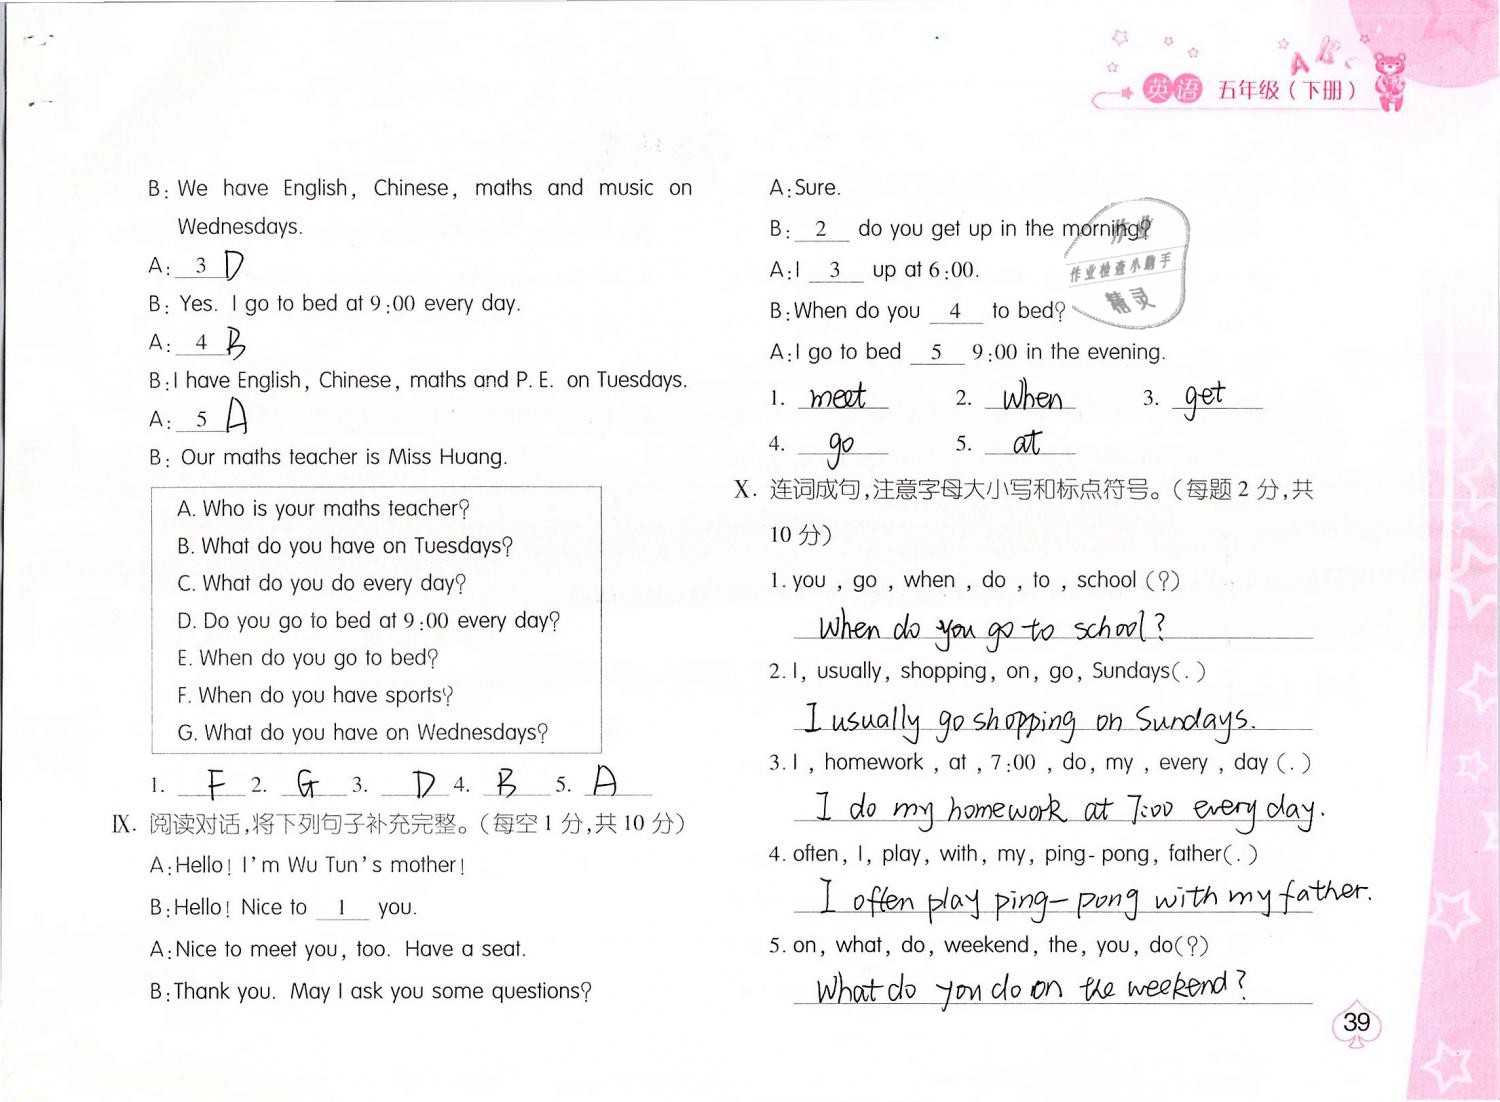 英语 五年级(下册)
B: We have English, Chinese, maths and music on
Wednesdays.
A: 3 D
B: Yes. I go to bed at 9:00 every day.
A: 4 B
B: I have English, Chinese, maths and P. E. on Tuesdays.
A: 5 A
B: Our maths teacher is Miss Huang.
A. Who is your maths teacher?
B. What do you have on Tuesdays?
C. What do you do every day?
D. Do you go to bed at 9:00 every day?
E. When do you go to bed?
F. When do you have sports?
G. What do you have on Wednesdays?
1. F 2. G 3. D 4. B 5. A
Ⅸ. 阅读对话,将下列句子补充完整。(每空1分,共10分)
A: Hello! I'm Wu Tun's mother!
B: Hello! Nice to 1 you.
A: Nice to meet you, too. Have a seat.
B: Thank you. May I ask you some questions?
A: Sure.
B: 2 do you get up in the morning?
A: I 3 up at 6:00.
B: When do you 4 to bed?
A: I go to bed 5 9:00 in the evening.
作业
作业检查小助手
精灵
1. meet 2. When 3. get
4. go 5. at
Ⅹ. 连词成句,注意字母大小写和标点符号。(每题2分,共
10分)
1. you , go , when , do , to , school (?)
When do you go to school?
2. I, usually, shopping, on, go, Sundays(.)
I usually go shopping on Sundays.
3. I , homework , at , 7:00 , do, my , every , day (.)
I do my homework at 7:00 every day.
4. often, I, play, with, my, ping-pong, father(.)
I often play ping-pong with my father.
5. on, what, do, weekend, the, you, do(?)
What do you do on the weekend?
39